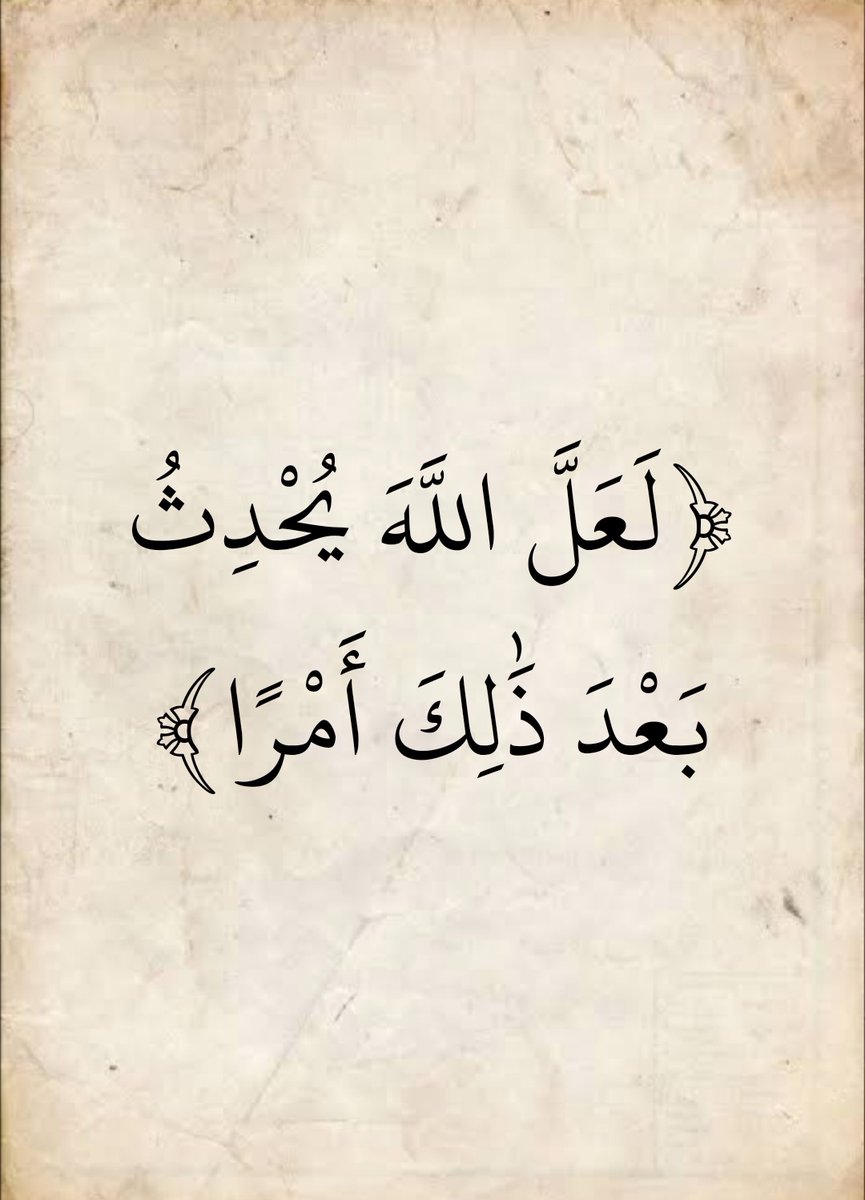 ﴿لَعَلَّ اللَّهَ يُحْدِثُ
بَعْدَ ذَٰلِكَ أَمْرًا﴾